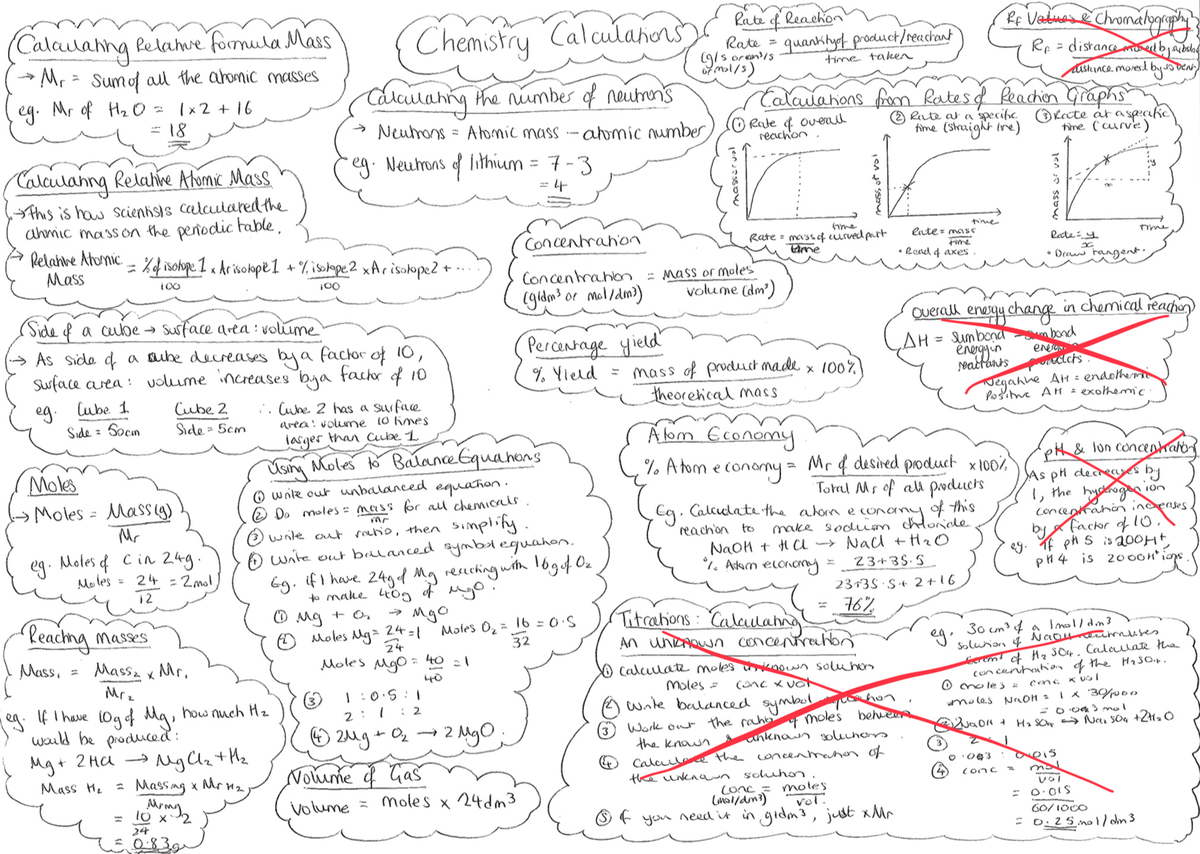 Chemistry Calculations
Calculating Relative formula Mass
→ Mr = Sum of all the atomic masses
eg. Mr of H₂O = 1×2 + 16
= 18
Calculating Relative Atomic Mass
→ This is how scientists calculated the
atomic mass on the periodic table.
→ Relative Atomic Mass = % of isotope 1 / 100 × Ar isotope 1 + % isotope 2 / 100 × Ar isotope 2 + ....
Side of a cube → surface area : volume
→ As side of a cube decreases by a factor of 10,
surface area : volume increases by a factor of 10
eg. Cube 1 Cube 2 ∴ Cube 2 has a surface
Side = 50cm Side = 5cm area : volume 10 times
larger than Cube 1
Moles
→ Moles = Mass(g) / Mr
eg. Moles of C in 24g.
Moles = 24 / 12 = 2mol
Reacting masses
Mass₁ = Mass₂ / Mr₂ × Mr₁
eg. If I have 10g of Mg, how much H₂
would be produced:
Mg + 2HCl → MgCl₂ + H₂
Mass H₂ = Mass Mg / Mr Mg × Mr H₂
= 10 / 24 × 2
= 0.83g
Using Moles to Balance Equations
① Write out unbalanced equation.
② Do moles = mass / mr for all chemicals
③ Write out ratio, then simplify.
④ Write out balanced symbol equation.
Eg. if I have 24g of Mg reacting with 16g of O₂
to make 40g of MgO.
① Mg + O₂ → MgO
② Moles Mg = 24 / 24 = 1 Moles O₂ = 16 / 32 = 0.5
Moles MgO = 40 / 40 = 1
③ 1 : 0.5 : 1
2 : 1 : 2
④ 2Mg + O₂ → 2MgO
Volume of Gas
Volume = moles × 24dm³
Calculating the number of neutrons
→ Neutrons = Atomic mass – atomic number
eg. Neutrons of lithium = 7 - 3
= 4
Concentration
Concentration (g/dm³ or mol/dm³) = Mass or moles / volume (dm³)
Percentage yield
% Yield = mass of product made / theoretical mass × 100%
Atom Economy
% Atom economy = Mr of desired product / Total Mr of all products × 100%
Eg. Calculate the atom economy of this
reaction to make sodium chloride
NaOH + HCl → NaCl + H₂O
% Atom economy = 23+35.5 / 23+35.5+2+16
= 76%
Rate of Reaction
Rate = quantity of product/reactant / time taken
(g/s or cm³/s
or mol/s)
Rf Values & Chromatography
Rf = distance moved by / distance moved by solvent
Calculations from Rates of Reaction Graphs
① Rate of overall
reaction.
mass or vol
time
Rate = mass of curved part / time
② Rate at a specific
time (straight line)
mass or vol
time
Rate = mass / time
• Read of axes.
③ Rate at a specific
time (curve)
mass or vol
y
x
time
Rate = y / x
• Draw tangent.
Overall energy change in chemical reaction
ΔH = Sum bond energy in reactants – Sum bond energy products.
Negative ΔH = endothermic
Positive ΔH = exothermic.
pH & Ion concentration
As pH decreases by
1, the hydrogen ion
concentration increases
by a factor of 10.
eg. If pH 5 is 200H⁺,
pH 4 is 2000H⁺ ions.
Titrations : Calculating
An unknown concentration
① Calculate moles unknown solution
Moles = conc × vol
② Write balanced symbol equation.
③ Work out the ratio of moles between
the known & unknown solutions.
④ Calculate the concentration of
the unknown solution.
conc (mol/dm³) = moles / vol.
⑤ If you need it in g/dm³, just ×Mr
eg. 30cm³ of a 1mol/dm³
solution of NaOH neutralises
of H₂SO₄. Calculate the
concentration of the H₂SO₄.
① moles = conc × vol
moles NaOH = 1 × 30/1000
= 0.003 mol
② 2NaOH + H₂SO₄ → Na₂SO₄ + 2H₂O
③ 2 : 1
0.003 : 0.015
④ conc = mol / vol
= 0.015 / 60/1000
= 0.25 mol/dm³